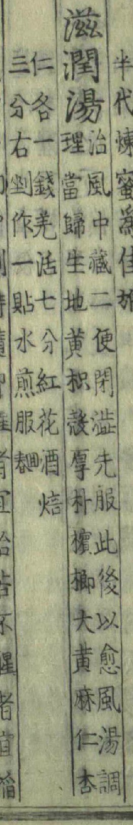 半代煉蜜爲佳
滋潤湯 治風中藏二便閉澁先服此後以愈風湯調
理當歸生地黃枳殼厚朴檳榔大黃麻仁杏
仁各一錢羌活七分紅花酒焙
三分右剉作一貼水煎服